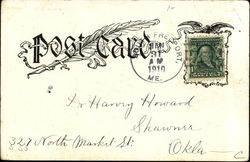 Post Card
FREEPORT,
JAN
31
A M
1910
ME.
Dr Harry Howard
Shawnee
327 North Market St.
Okla